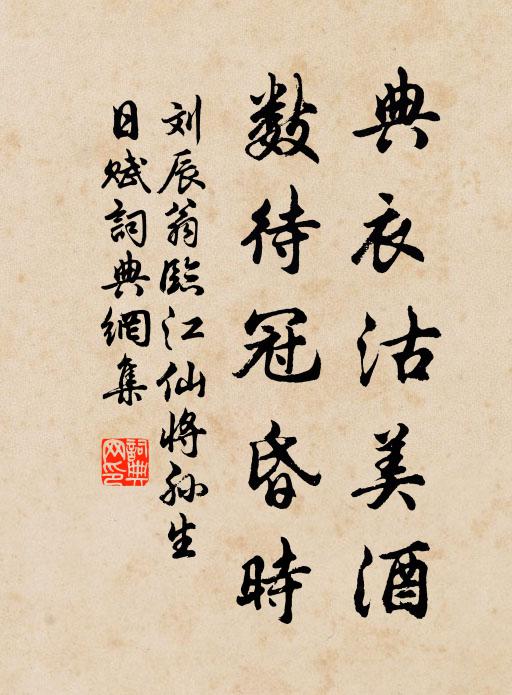 典衣沽美酒
数待冠昏時
刘辰翁臨江仙将孙生
日赋詞典網集
詞典網印